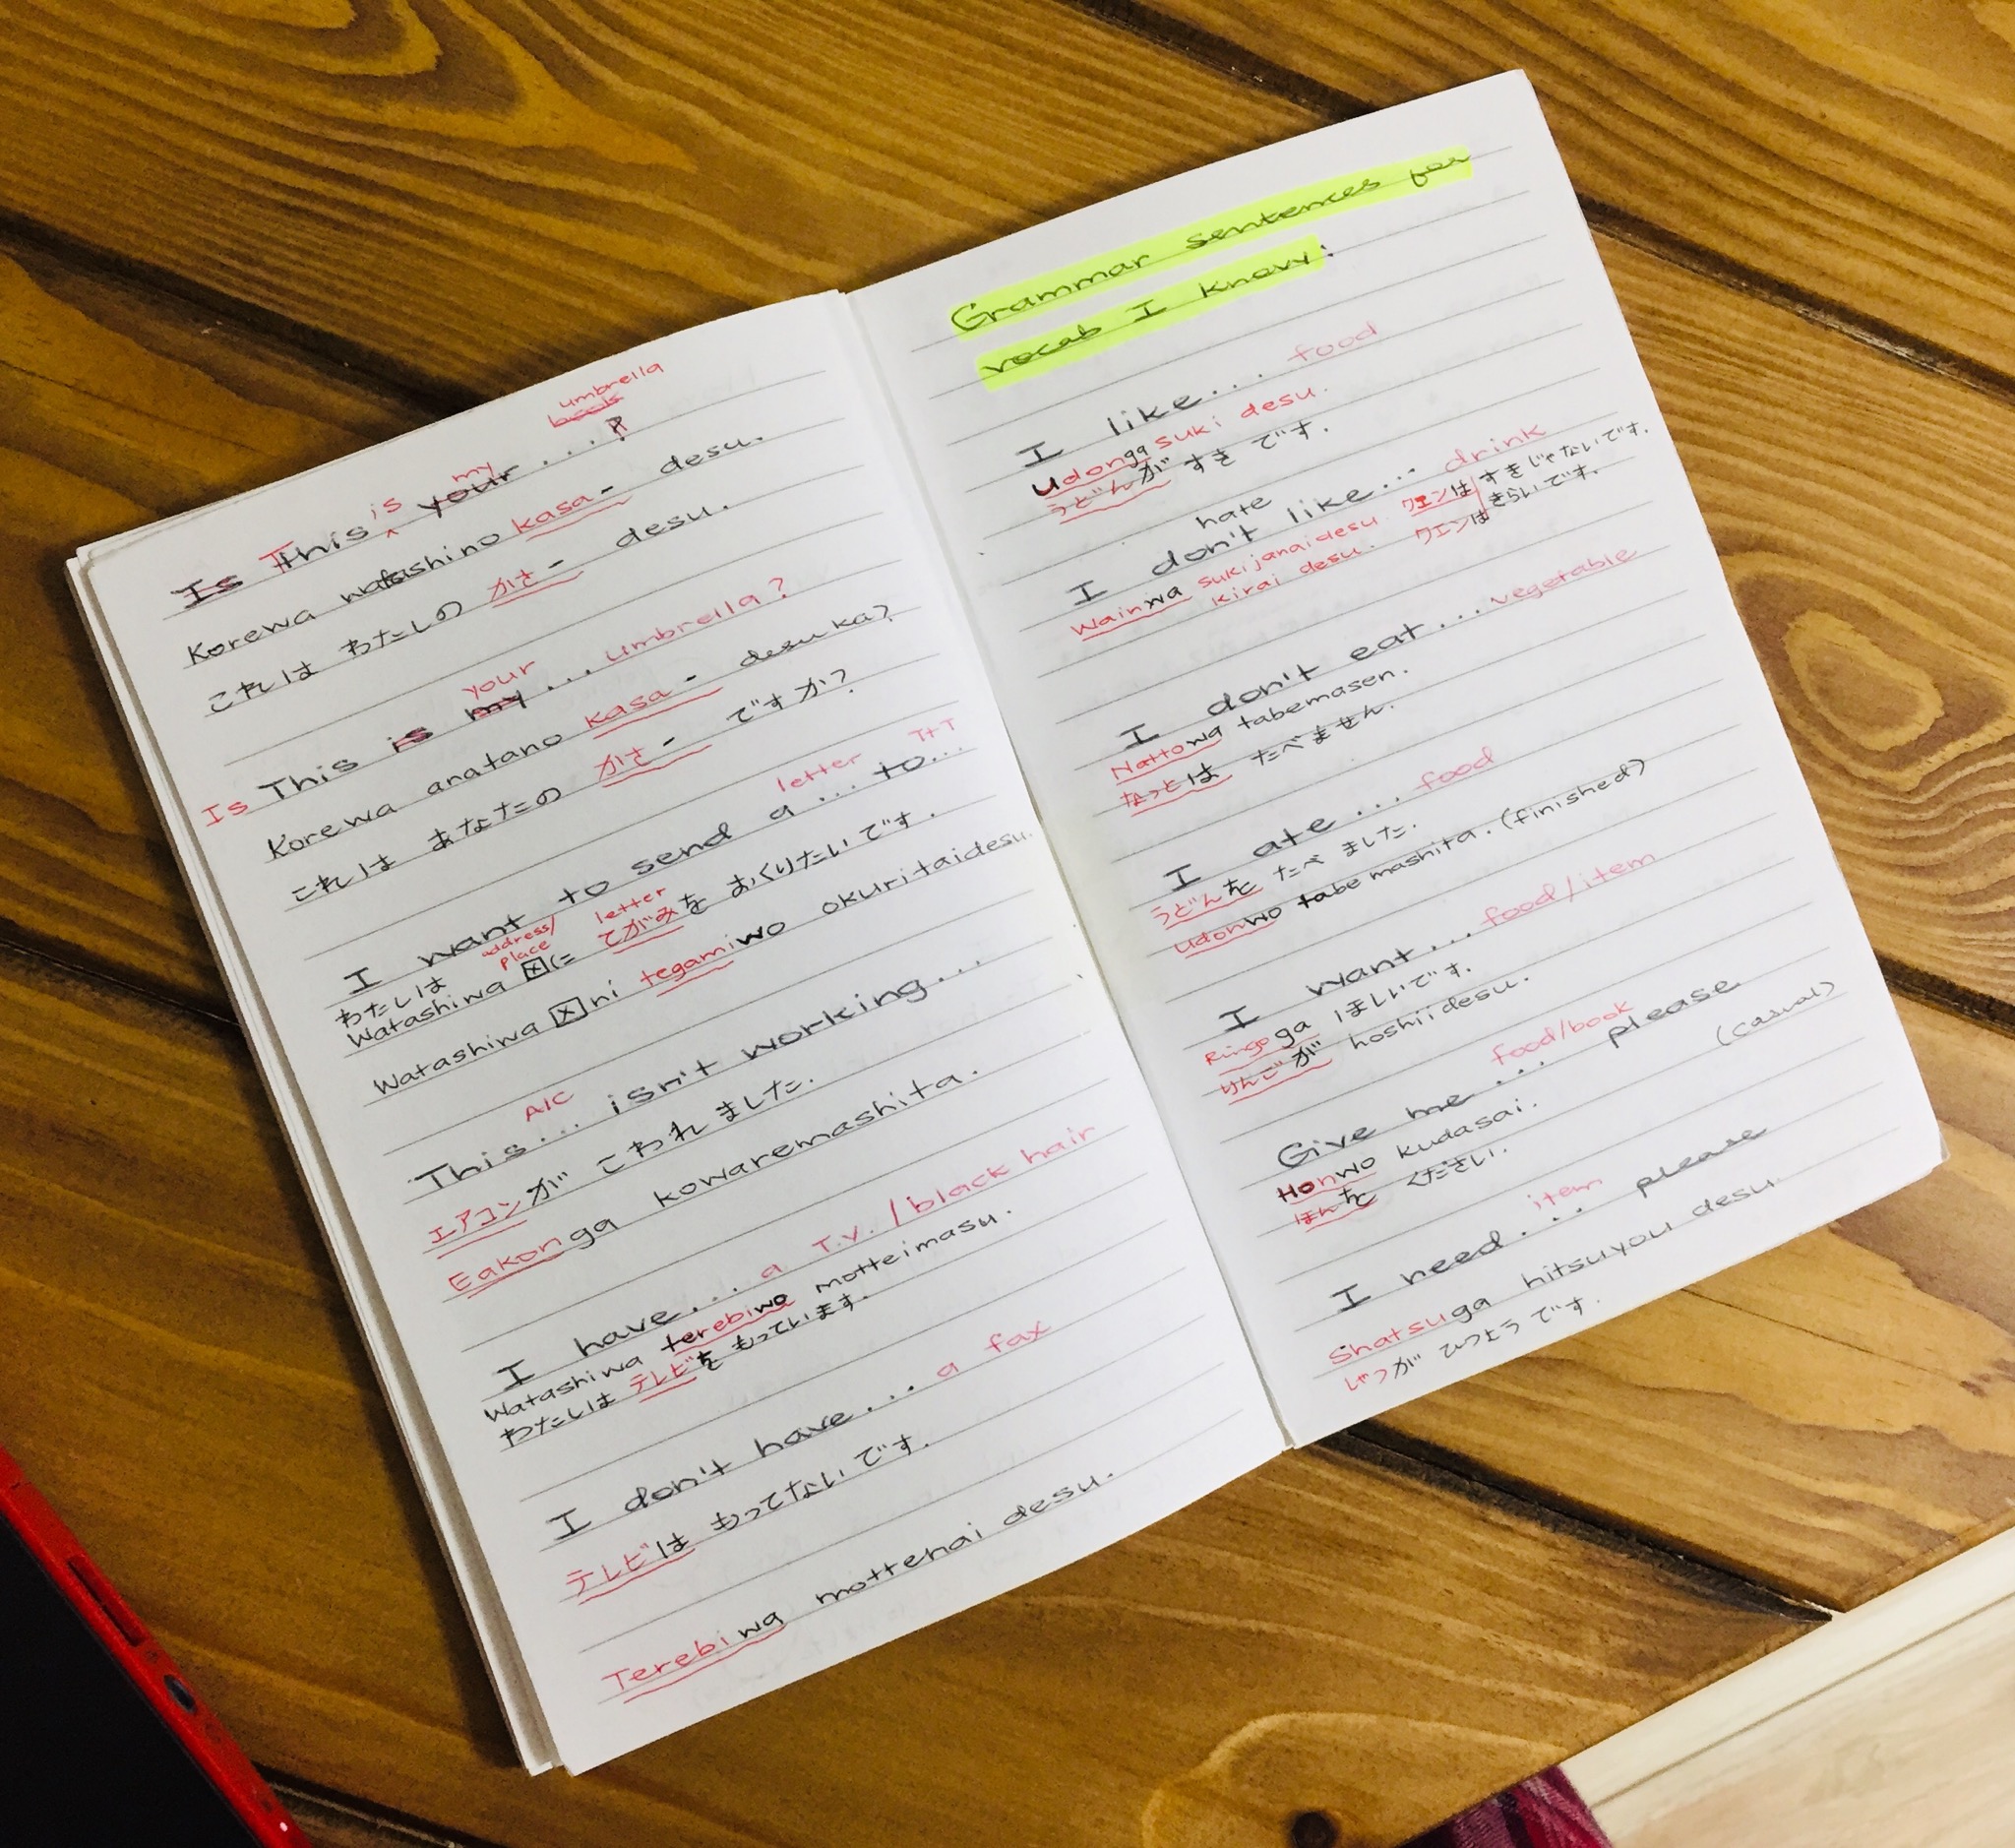 umbrella
is my
This ...
Korewa watashino kasa - desu.
これは わたしの かさ - desu.
your
Is This ... umbrella?
Korewa anatano kasa - desuka?
これは あなたの かさ - ですか?
letter T+T
I want to send a ... to...
address/ place letter
わたしは 図に てがみを おくりたいです.
Watashiwa
Watashiwa 図ni tegamiwo okuritaidesu.
A/C
This... isn't working...
エアコンが こわれました.
Eakonga kowaremashita.
I have... a T.V. / black hair
Watashiwa terebiwo motteimasu.
わたしは テレビを もっています.
I don't have... a fax
テレビは もってないです.
Terebiwa mottenai desu.
Grammar sentences for
vocab I know:
I like... food
Udonga suki desu.
うどんが すきです.
hate
I don't like... drink
Wainwa sukijanaidesu. ワエンは すきじゃないです.
kirai desu. ワエンは きらいです.
I don't eat... vegetable
Nattowa tabemasen.
なっとは たべません.
I ate... food
うどんを たべ ました.
Udonwo tabemashita. (finished)
I want... food/item
Ringoga ほしいです.
りんごが hoshiidesu.
food/book
Give me ... please
Honwo kudasai. (casual)
ほんを ください.
item
I need... please
Shatsuga hitsuyou desu
が ひつよう です.